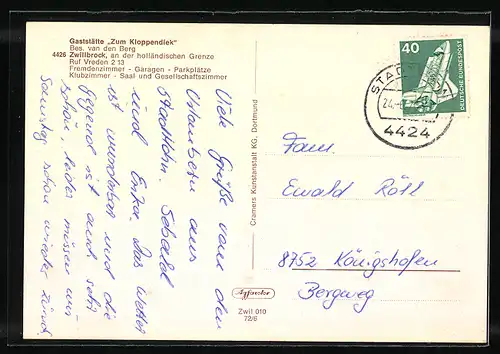 Gaststätte „Zum Kloppendiek"
Bes. van den Berg
4426 Zwillbrock, an der holländischen Grenze
Ruf Vreden 2 13
Fremdenzimmer - Garagen - Parkplätze
Klubzimmer - Saal und Gesellschaftszimmer
Viele Grüße von den
Urlaubern aus
Stadtlohn. Sebald
und Erika. Das Wetter
ist wunderbar und die
gegend ist auch sehr
schön, leider müssen wir
Samstag schon wieder zurück.
Cramers Kunstanstalt KG, Dortmund
Zwil 010
72/6
40
DEUTSCHE BUNDESPOST
4424
Fam.
Ewald Röll
8752 Königshofen
Bergweg